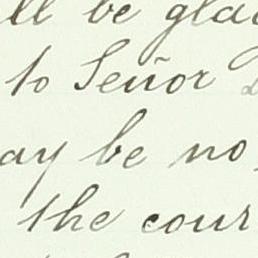 ll be gla
to Señor
ay be no
the cour